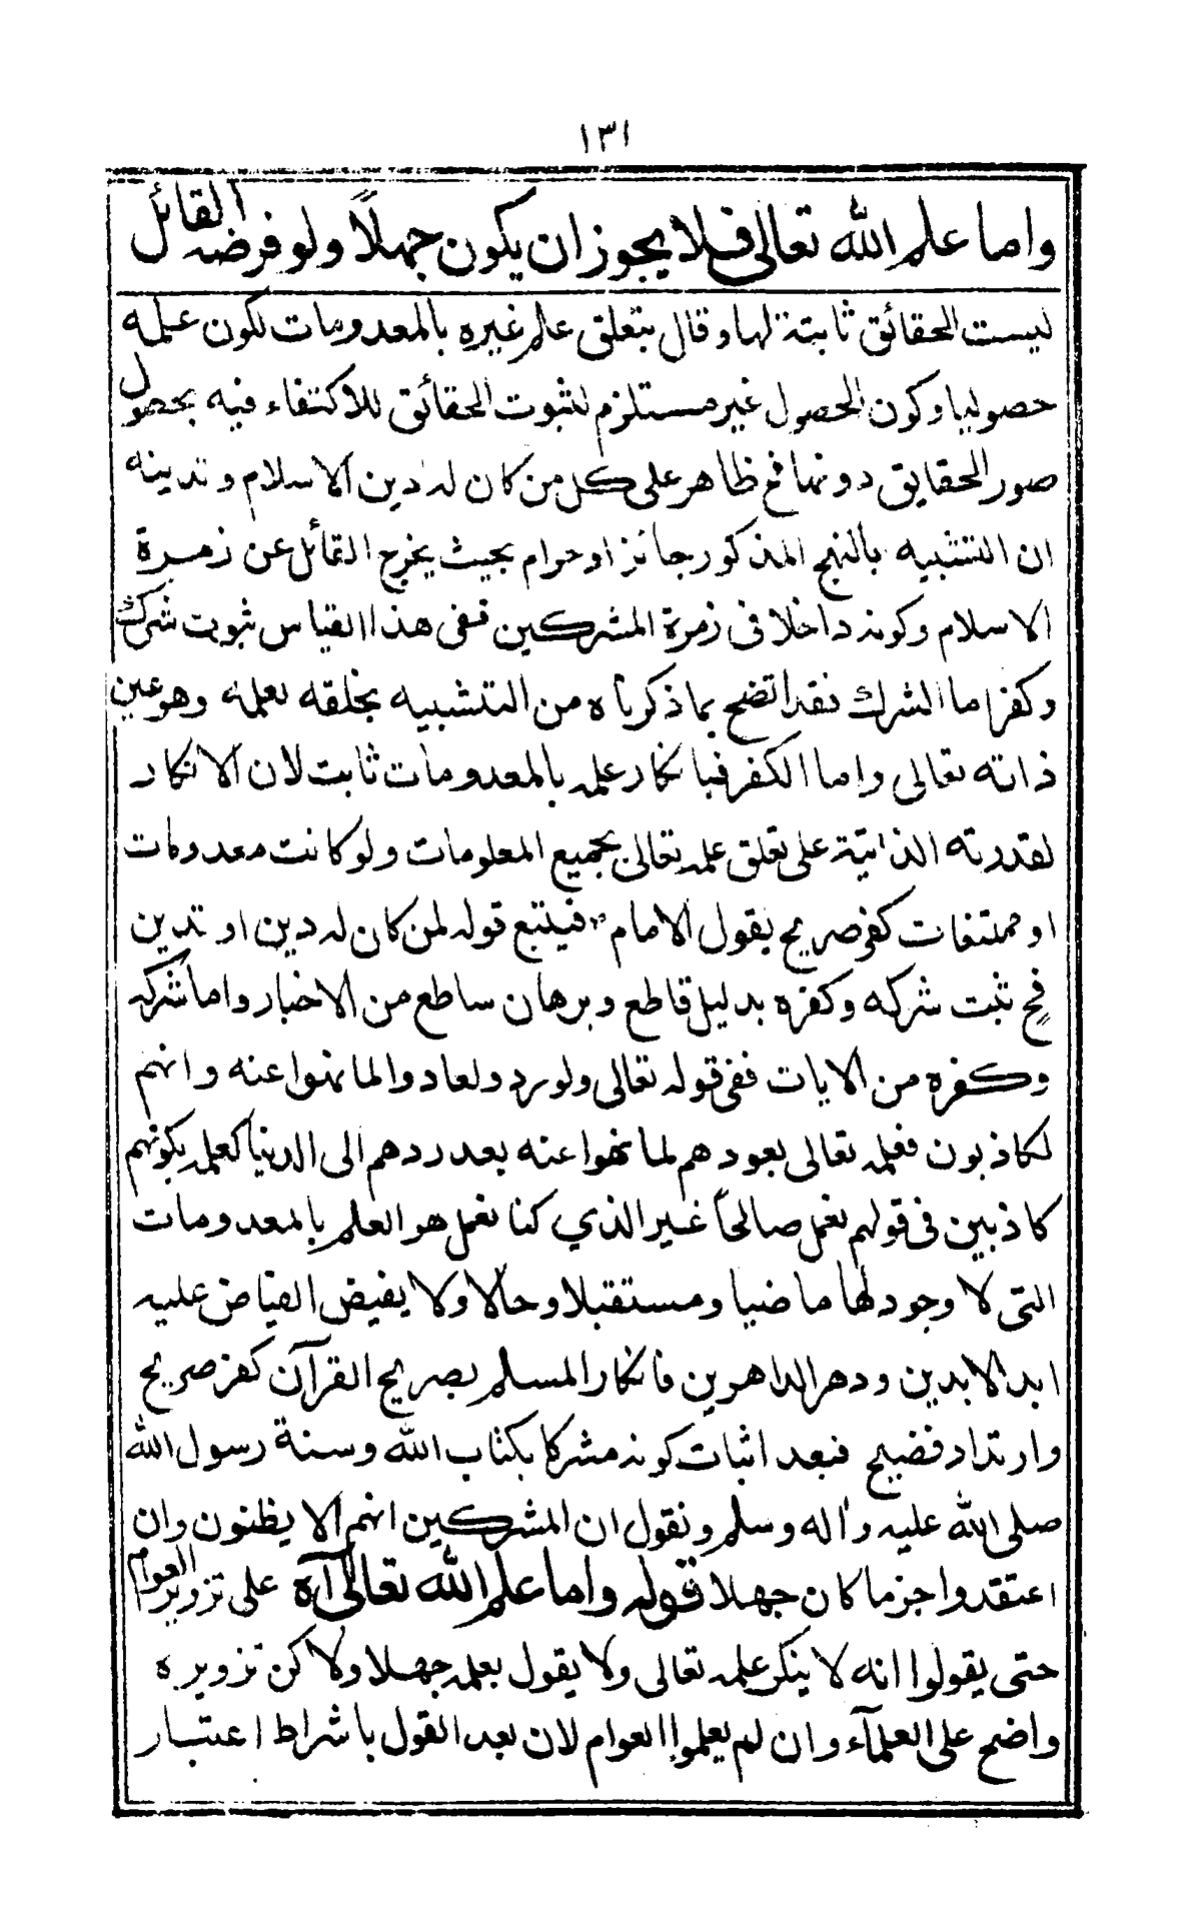 ١٣١
واما علم الله تعالى فلا يجوز ان يكون جهلاً ولو فرضه القائل
ليست الحقائق ثابتة لها وقال بتعلق علم غيره بالمعدومات لكون علمه
حصوليا وكون الحصول غير مستلزم لثبوت الحقائق للاكتفاء فيه بحصول
صور الحقايق دونها فح ظاهر على كل من كان له دين الاسلام وتدينه
ان التشبيه بالنهج المذكور جائز او حرام بحيث يخرج القائل عن زمرة
الاسلام وكونه داخلا فى زمرة المشركين ففى هذا القياس ثبوت شرك
وكفر اما الشرك فقد اتضح بما ذكرناه من التشبيه بخلقه لعلمه وهو عين
ذاته تعالى واما الكفر فبانكار علمه بالمعدومات ثابت لان الانكار
لقدرته الذاتية على تعلق علمه تعالى بجميع المعلومات ولو كانت معدومات
او ممتنعات كفر صريح بقول الامام ؑ فيتبع قوله لمن كان له دين او تدين
فح ثبت شركه وكفره بدليل قاطع وبرهان ساطع من الاخبار واما شركه
وكفره من الايات ففى قوله تعالى ولو ردو لعادوا لما نهوا عنه وانهم
لكاذبون فعلمه تعالى بعودهم لما نهوا عنه بعد ردهم الى الدنيا كعلمه بكونهم
كاذبين فى قولهم نعمل صالحاً غير الذي كنا نعمل هو العلم بالمعدومات
التى لا وجود لها ماضيا ومستقبلا وحالا ولا يفيض الفياض عليه
ابد الابدين ودهر الداهرين فانكار المسلم بصريح القرآن كفر صريح
وارتداد فضيح فبعد اثبات كونه مشركا بكتاب الله وسنة رسول الله
صلى الله عليه واله وسلم ونقول ان المشركين انهم الا يظنون وان
اعتقدوا جزما كان جهلا قوله واما علم الله تعالى آه على تزوير العوام
حتى يقولوا انه لا ينكر علمه تعالى ولا يقول بعلمه جهلا ولاكن تزويره
واضح على العلمآء وان لم يعلموا العوام لان بعد القول باشراط اعتبار